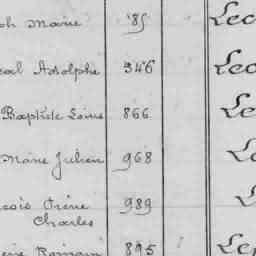 ph Marie 85 Lec
cal Adolphe 346 Lec
Baptiste Louis 866 Le
Marie Julien 968 Le
çois Irène 989 L
Charles
erre Romain 895 Lep